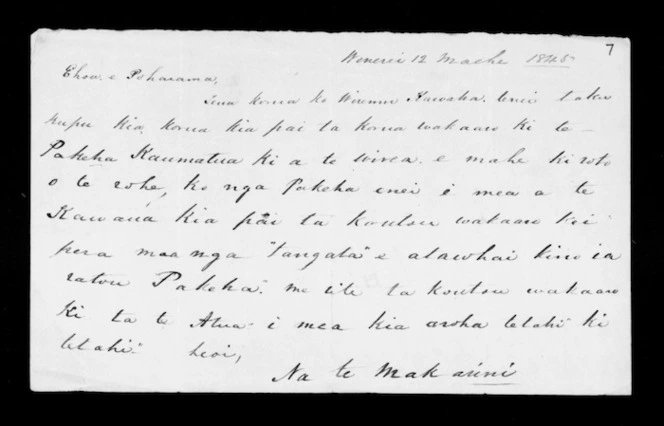 7
Wenerei 12 Maehe 1845
Ehoa. e Poharama,
Tena korua ko Wiremu Kawaha. tenei taku
kupu kia korua kia pai ta korua wakaaro ki te
Pakeha Kaumatua ki a te wirea. e mahe ki roto
o te rohe, ko nga Pakeha enei i mea a te
Kawana kia pai ta koutou wakaaro kei
pera maa nga "tangata" e atawhai kino ia
ratou Pakeha. me rite ta koutou wakaaro
ki ta te Atua i mea kia aroha tetahi ki
tetahi. heoi,
Na te Makarini